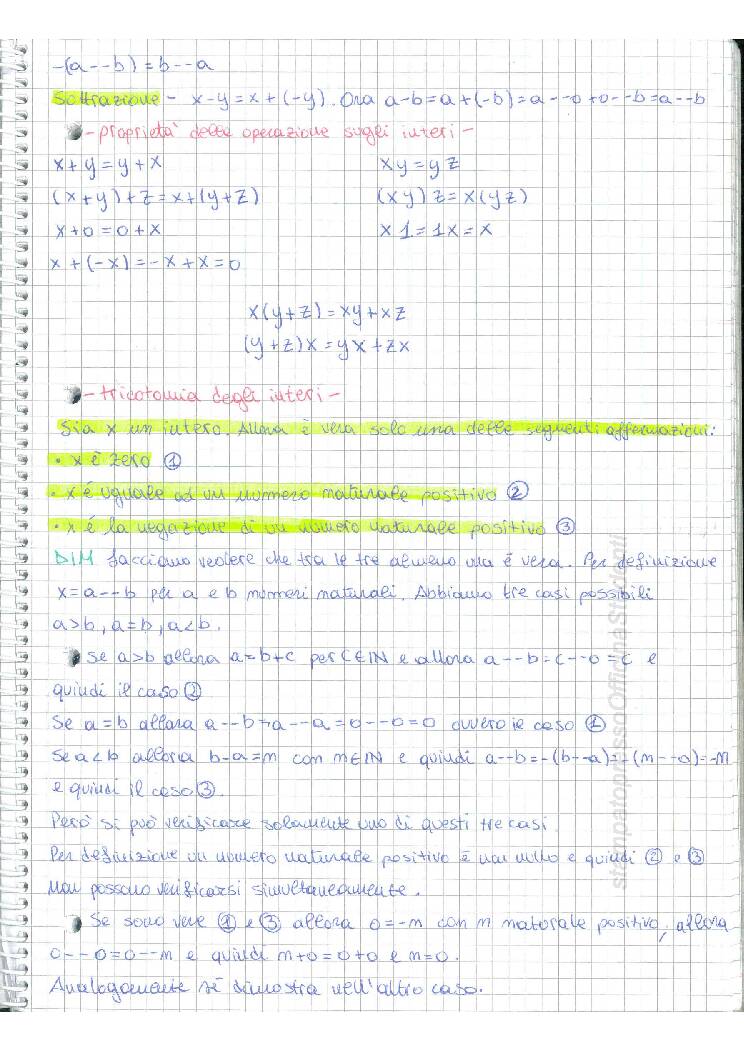 -(a--b) = b--a
Sottrazione - x-y = x+(-y). Ora a-b = a+(-b) = a--0+0--b = a--b
- proprietà delle operazione sugli interi -
x+y = y+x
xy = yz
(x+y)+z = x+(y+z)
(xy)z = x(yz)
x+0 = 0+x
x1 = 1x = x
x+(-x) = -x+x = 0
x(y+z) = xy+xz
(y+z)x = yx+zx
- tricotomia degli interi -
Sia x un intero. Allora è vera solo una delle seguenti affermazioni:
• x è zero ①
• x è uguale ad un numero naturale positivo ②
• x è la negazione di un numero naturale positivo ③
DIM facciamo vedere che tra le tre almeno una è vera. Per definizione
x = a--b per a e b numeri naturali. Abbiamo tre casi possibili
a>b, a=b, a<b.
Se a>b allora a=b+c per C∈IN e allora a--b = c--0 = c e
quindi il caso ②
Se a=b allora a--b = a--a = 0--0 = 0 ovvero il caso ①
Se a<b allora b-a=m con m∈IN e quindi a--b = -(b--a) = -(m--a) = -M
e quindi il caso ③.
Però si può verificare solamente uno di questi tre casi.
Per definizione un numero naturale positivo è non nullo e quindi ② e ③
non possono verificarsi simultaneamente.
Se sono vere ① e ③ allora 0=-m con m naturale positivo, allora
0--0 = 0--m e quindi m+0 = 0+0 e m=0.
Analogamente si dimostra nell'altro caso.
stampatopressoOfficinaStudenti